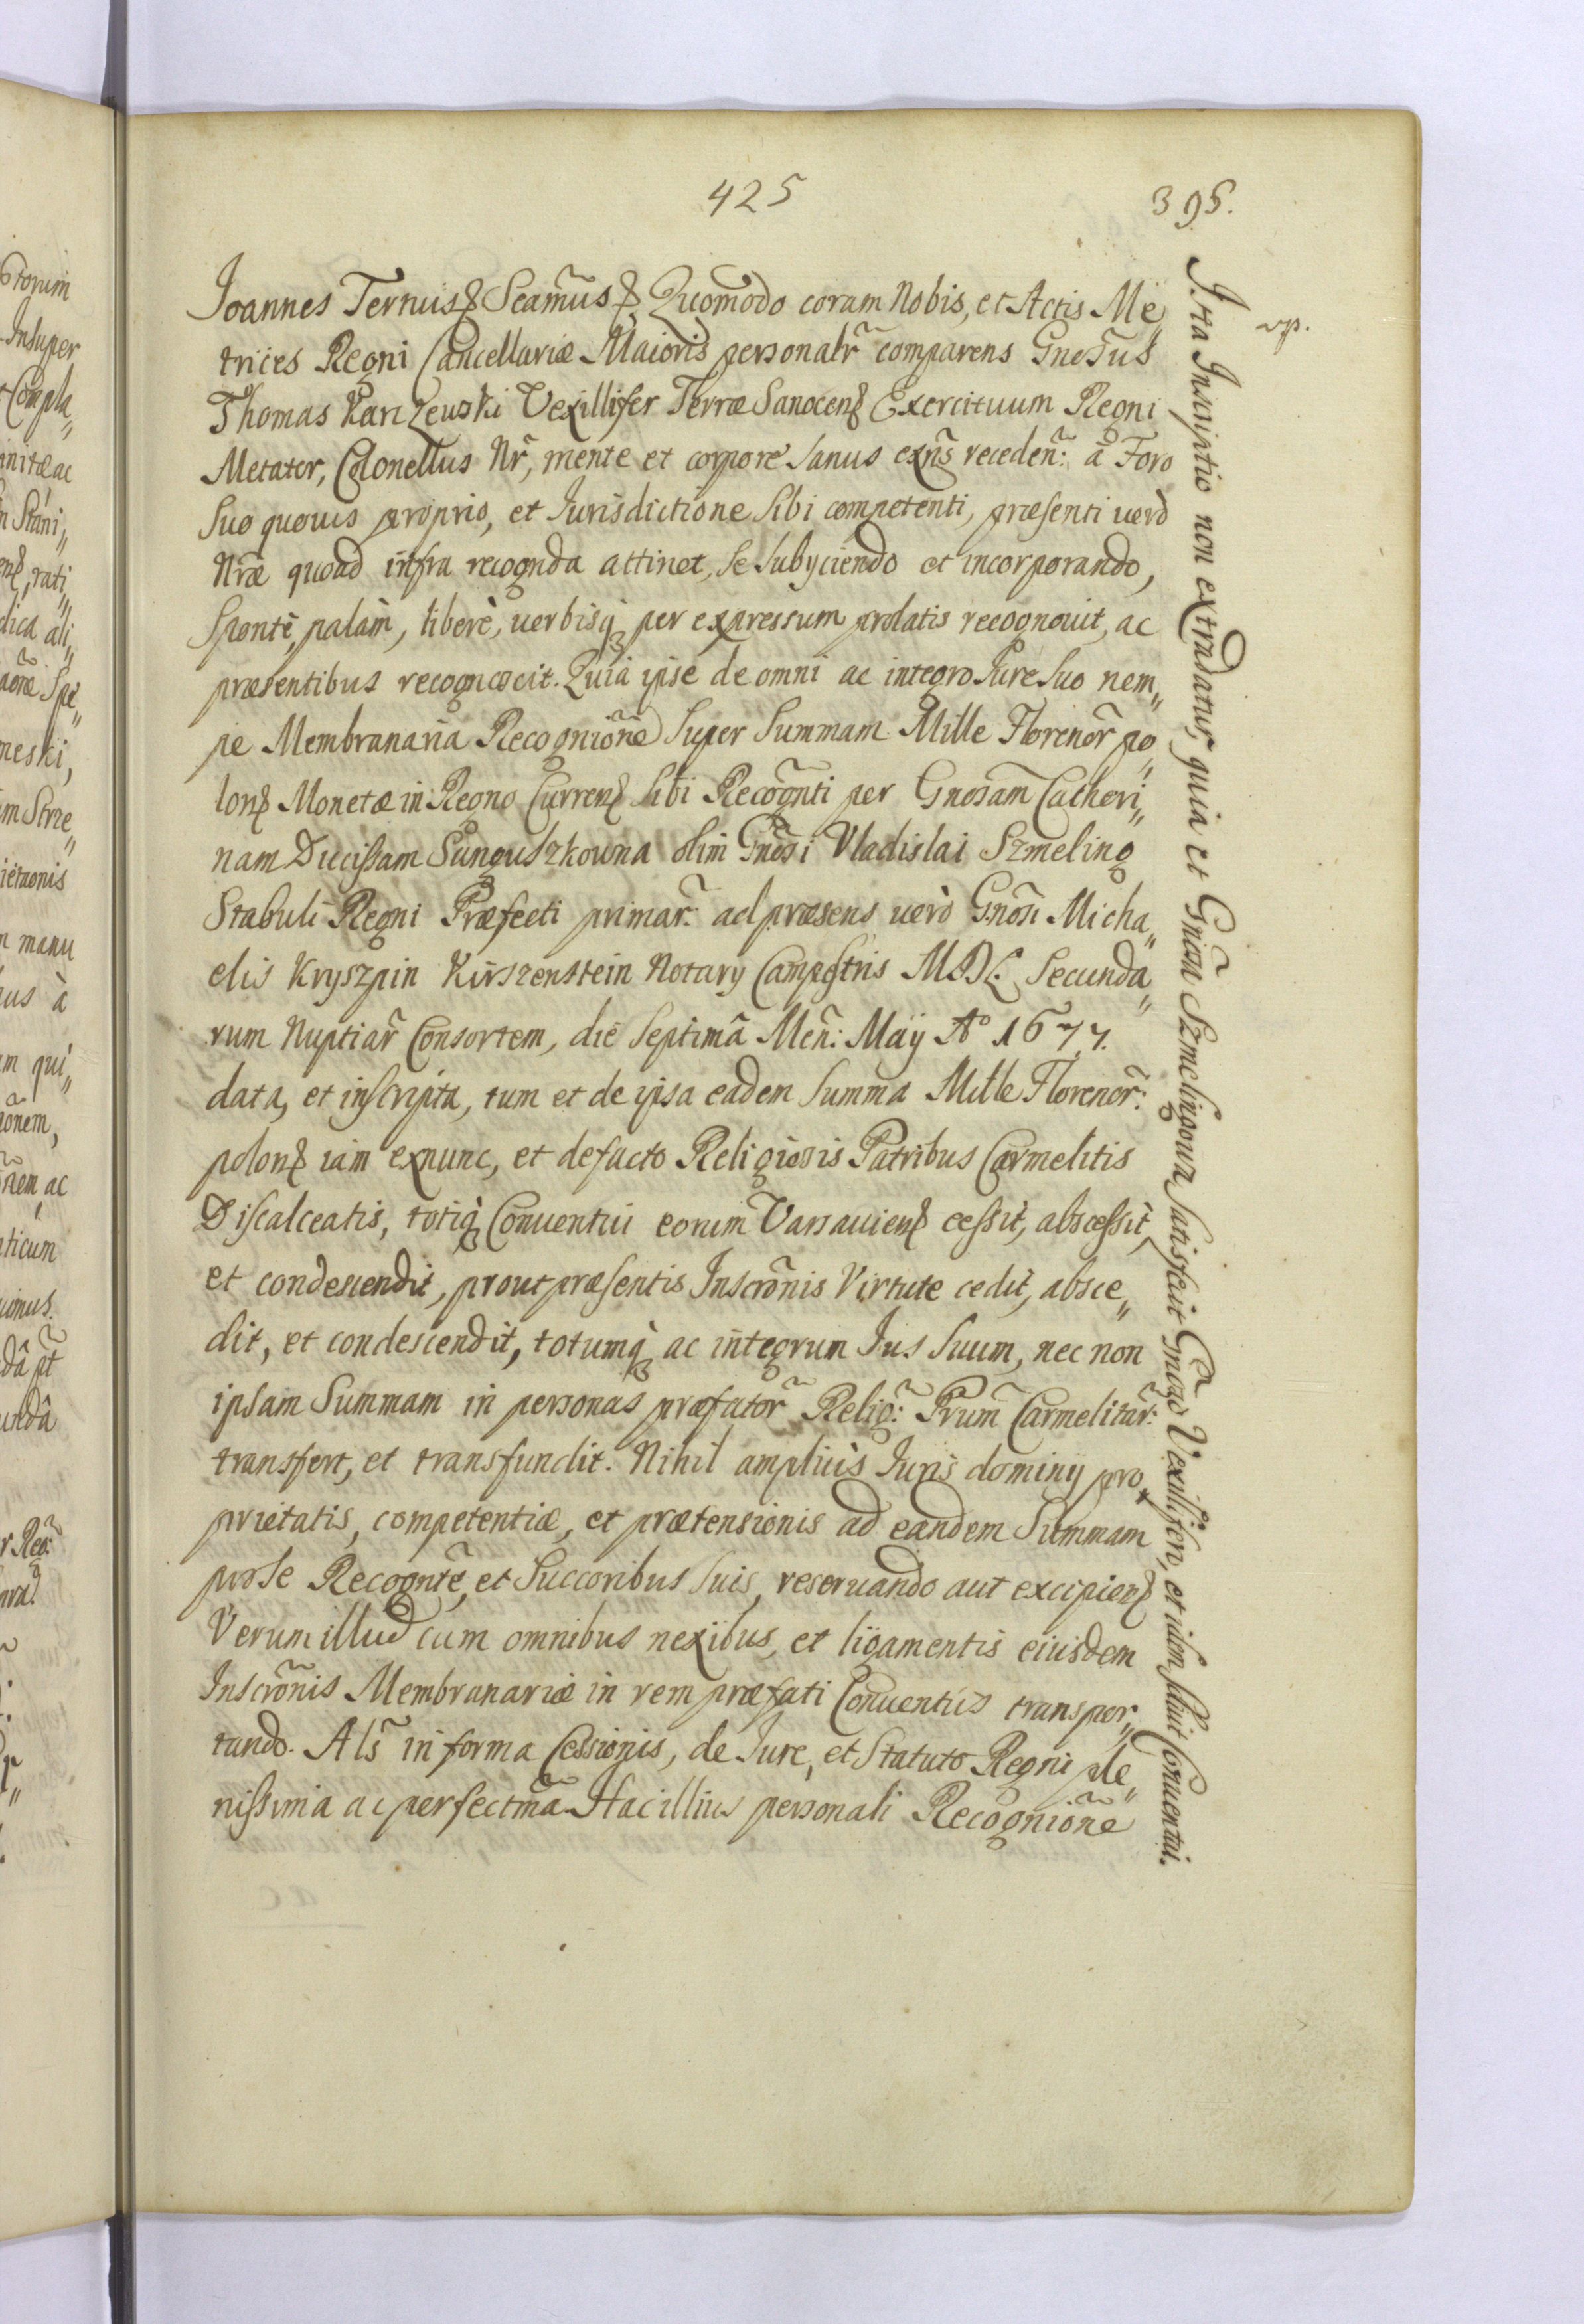 425
395.
Joannes Tertius etc. Seamus etc. Quomodo coram Nobis, et Actis Me„
trices Regni Cancellariæ Maioris personalr̃ comparens Gnosus
Thomas Karczewski Vexillifer Terræ Sanocen̄ Exercituum Regni
Metator, Colonellus Nr̃, mente et corpore sanus exñs receden̄: à Foro
suo quouis proprio, et Iurisdictione sibi competenti, præsenti uerò
Nræ quoad infra recognda attinet, se subyciendo et incorporando,
Spontè, palàm, liberè, uerbisq́ per expressum prolatis recognouit, ac
præsentibus recognoscit. Quia ipse de omni ac integro Iure suo nem„
pe Membranaria Recognionẽ super Summam Mille Florenor̃ po„
lon̄ Monetæ in Regno Curren̄ sibi Recognti per Gnosam Catheri„
nam Ducissam Sunguszkowna olim Gnosi Vladislai Szmeling
Stabuli Regni Præfecti primar̃ ad præsens uerò Gnosi Micha„
elis Kryszpin Kirszenstein Notary Campestris M.D.L. Secunda„
rum Nuptiar̃ Consortem, die septimâ Men̄: Maij Aº 1677.
data, et inscripta, tum et de ipsa eadem summa Mille Florenor̃:
polon̄ iam exnunc, et defacto Religiosis Patribus Carmelitis
Discalceatis, totiq́ Conuentui eorum̃ Varsauien̄ cessit, abscessit,
et condescendit, prout præsentis Inscrõnis Virtute cedit, absce„
dit, et condescendit, totumq́ ac integrum Ius suum, nec non
ipsam Summam in personas præfator̃ Relig̃: Prum̃ Carmelitar̃:
transfert, et transfundit. Nihil ampliùs Iuris dominij pro„
prietatis, competentiæ, et prætensionis ad eandem Summam
pro se Recogntẽ, et Succoribus suis, reseruando aut excipien̄
Verum illud cum omnibus nexibus, et ligamentis eiusdem
Inscrõnis Membranariæ in rem præfati Conuentûs transpor„
tando. Als̃ in forma Cessionis, de Iure, et Statuto Regni ple„
nissima ac perfectma. Hac illius personali Recognionẽ
Ista Inscriptio non extradatur, quia et Gnosa Szmelingowa satisfecit Gnoso Vexillifero, et idem soluit Conuentui.